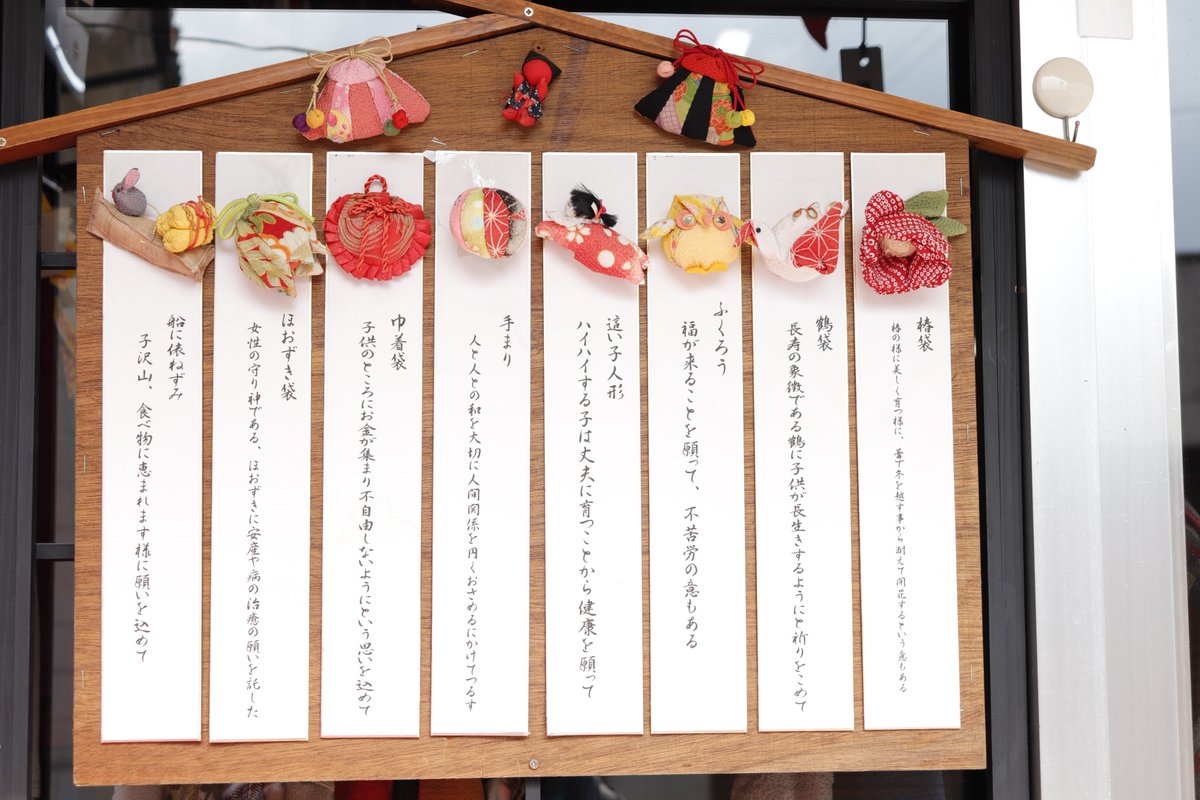 椿袋
椿の様に美しく育つ様に、蕾で冬を越す事から耐えて開花するという意もある
鶴袋
長寿の象徴である鶴に子供が長生きするようにと祈りをこめて
ふくろう
福が来ることを願って、不苦労の意もある
這い子人形
ハイハイする子は丈夫に育つことから健康を願って
手まり
人と人との和を大切に人間関係を円くおさめるにかけてつるす
巾着袋
子供のところにお金が集まり不自由しないようにという思いを込めて
ほおずき袋
女性の守り神である、ほおずきに安産や病の治癒の願いを託した
船に俵ねずみ
子沢山、食べ物に恵まれます様に願いを込めて